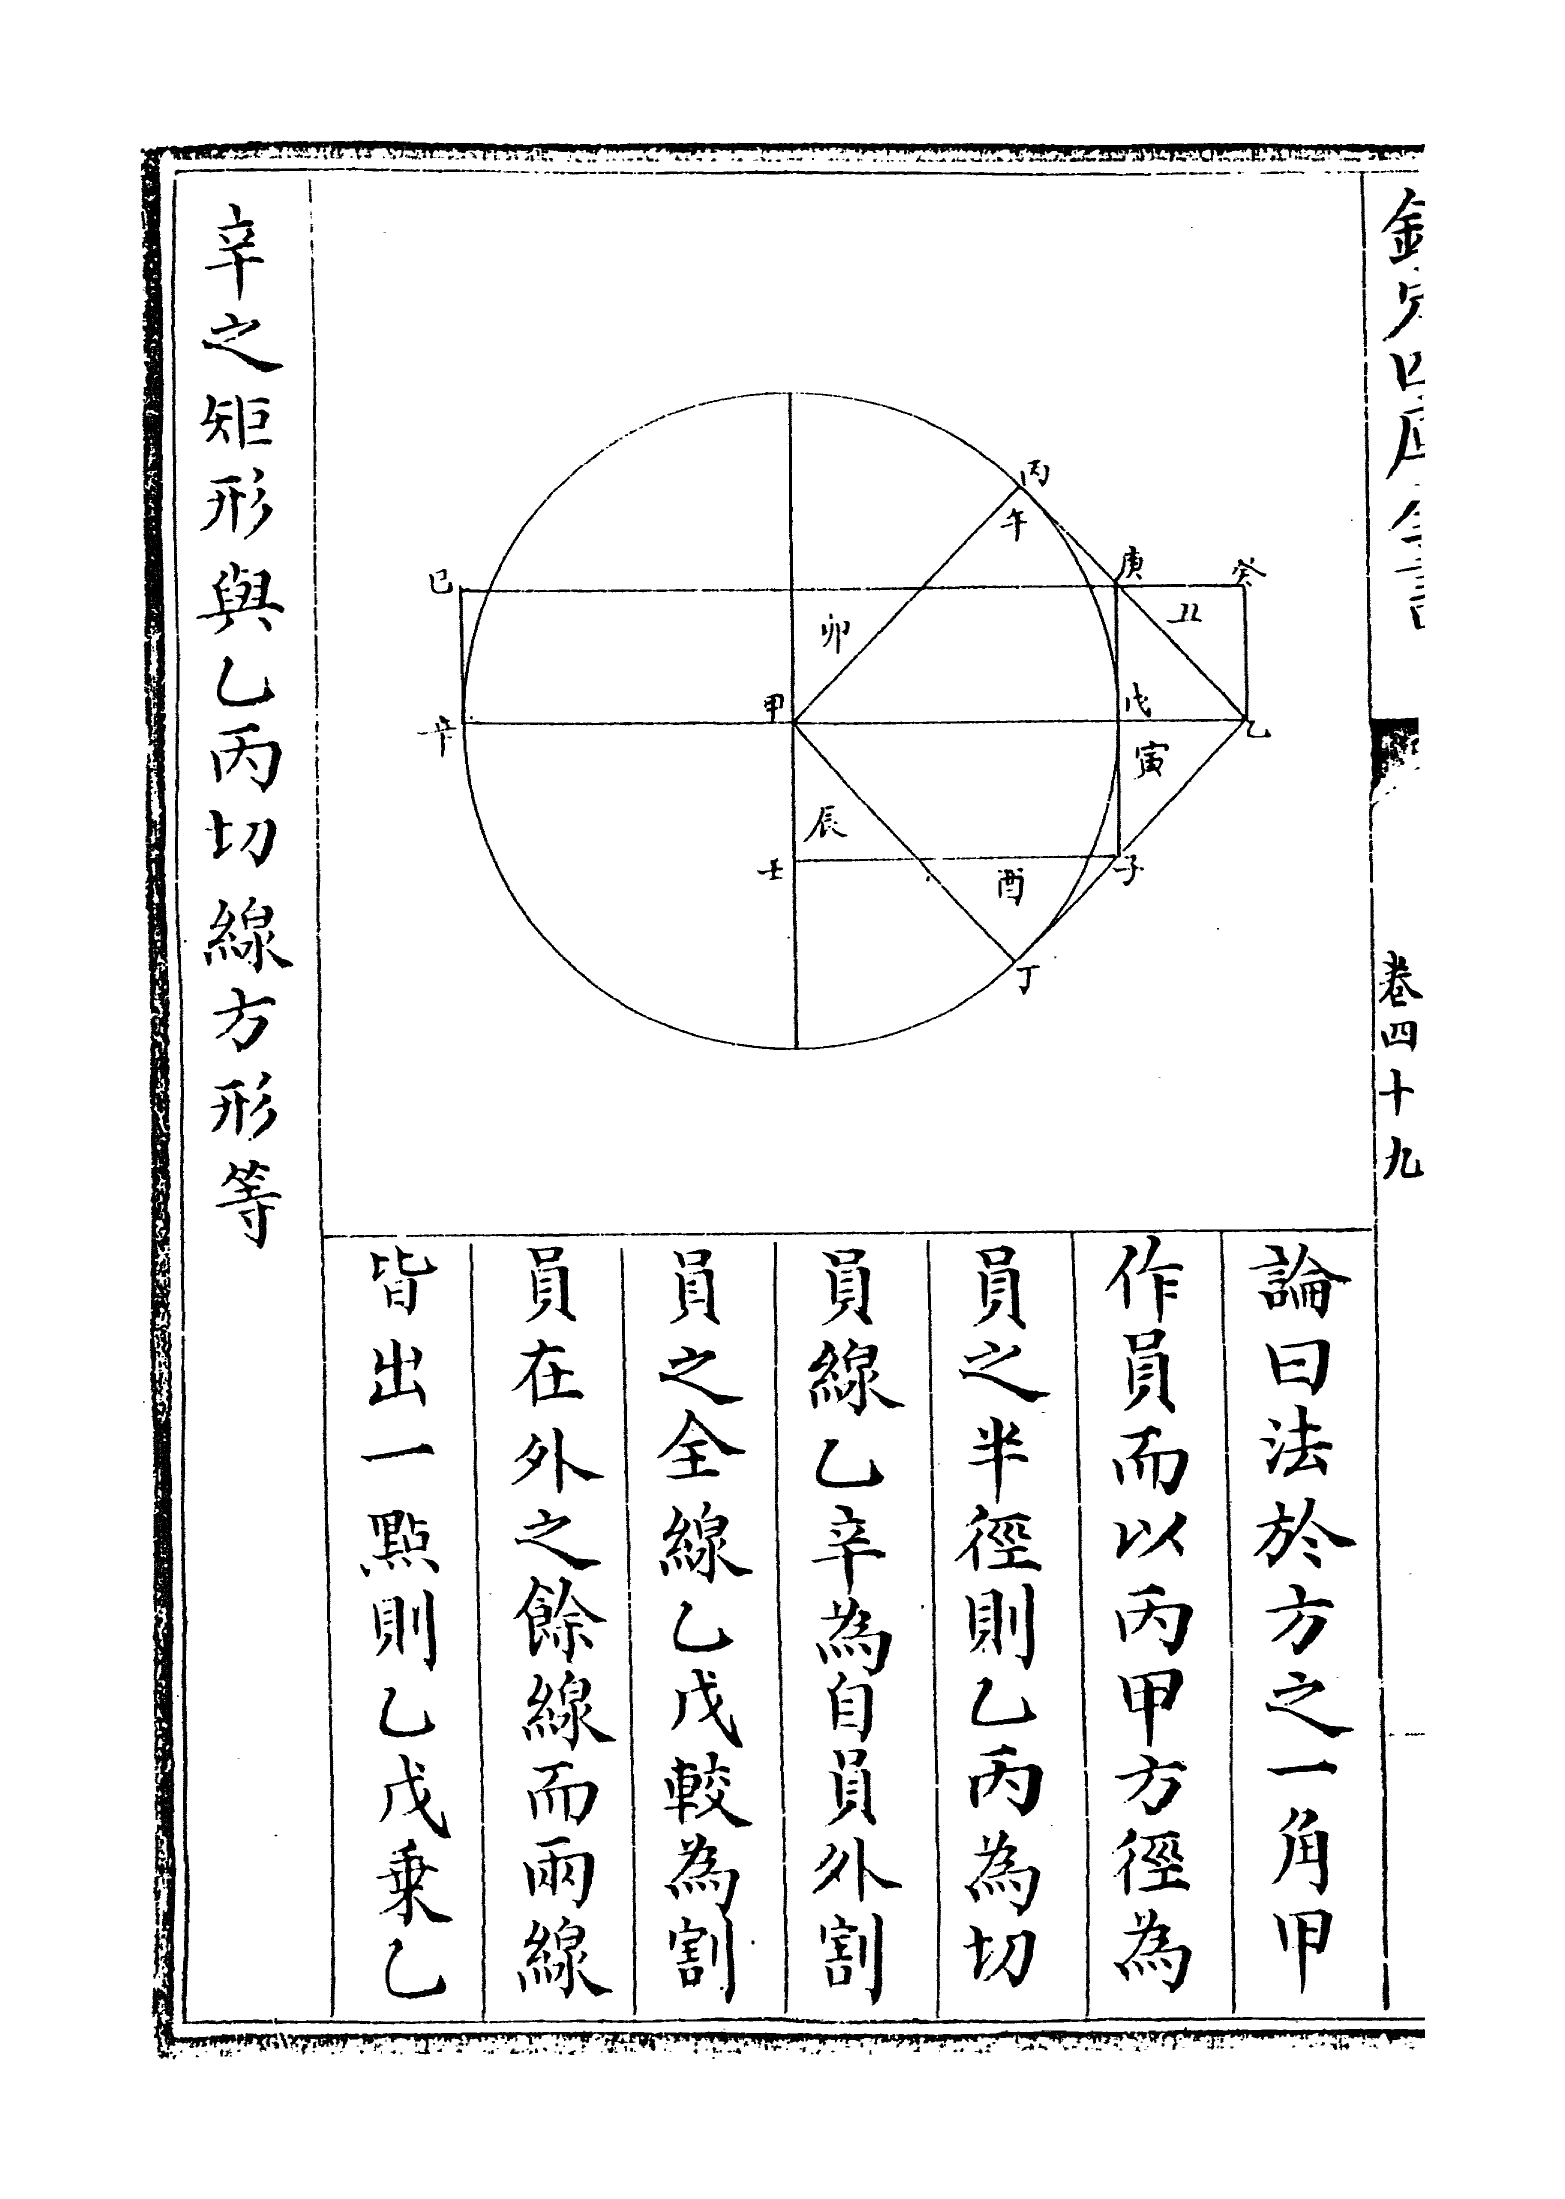 欽定四庫全書
卷四十九
丙
午
庚
癸
巳
丑
卯
甲
戊
辛
乙
寅
辰
壬
酉
子
丁
論曰法於方之一角甲
作員而以丙甲方徑為
員之半徑則乙丙為切
員線乙辛為自員外割
員之全線乙戊較為割
員在外之餘線而兩線
皆出一點則乙戊乗乙
辛之矩形與乙丙切線方形等